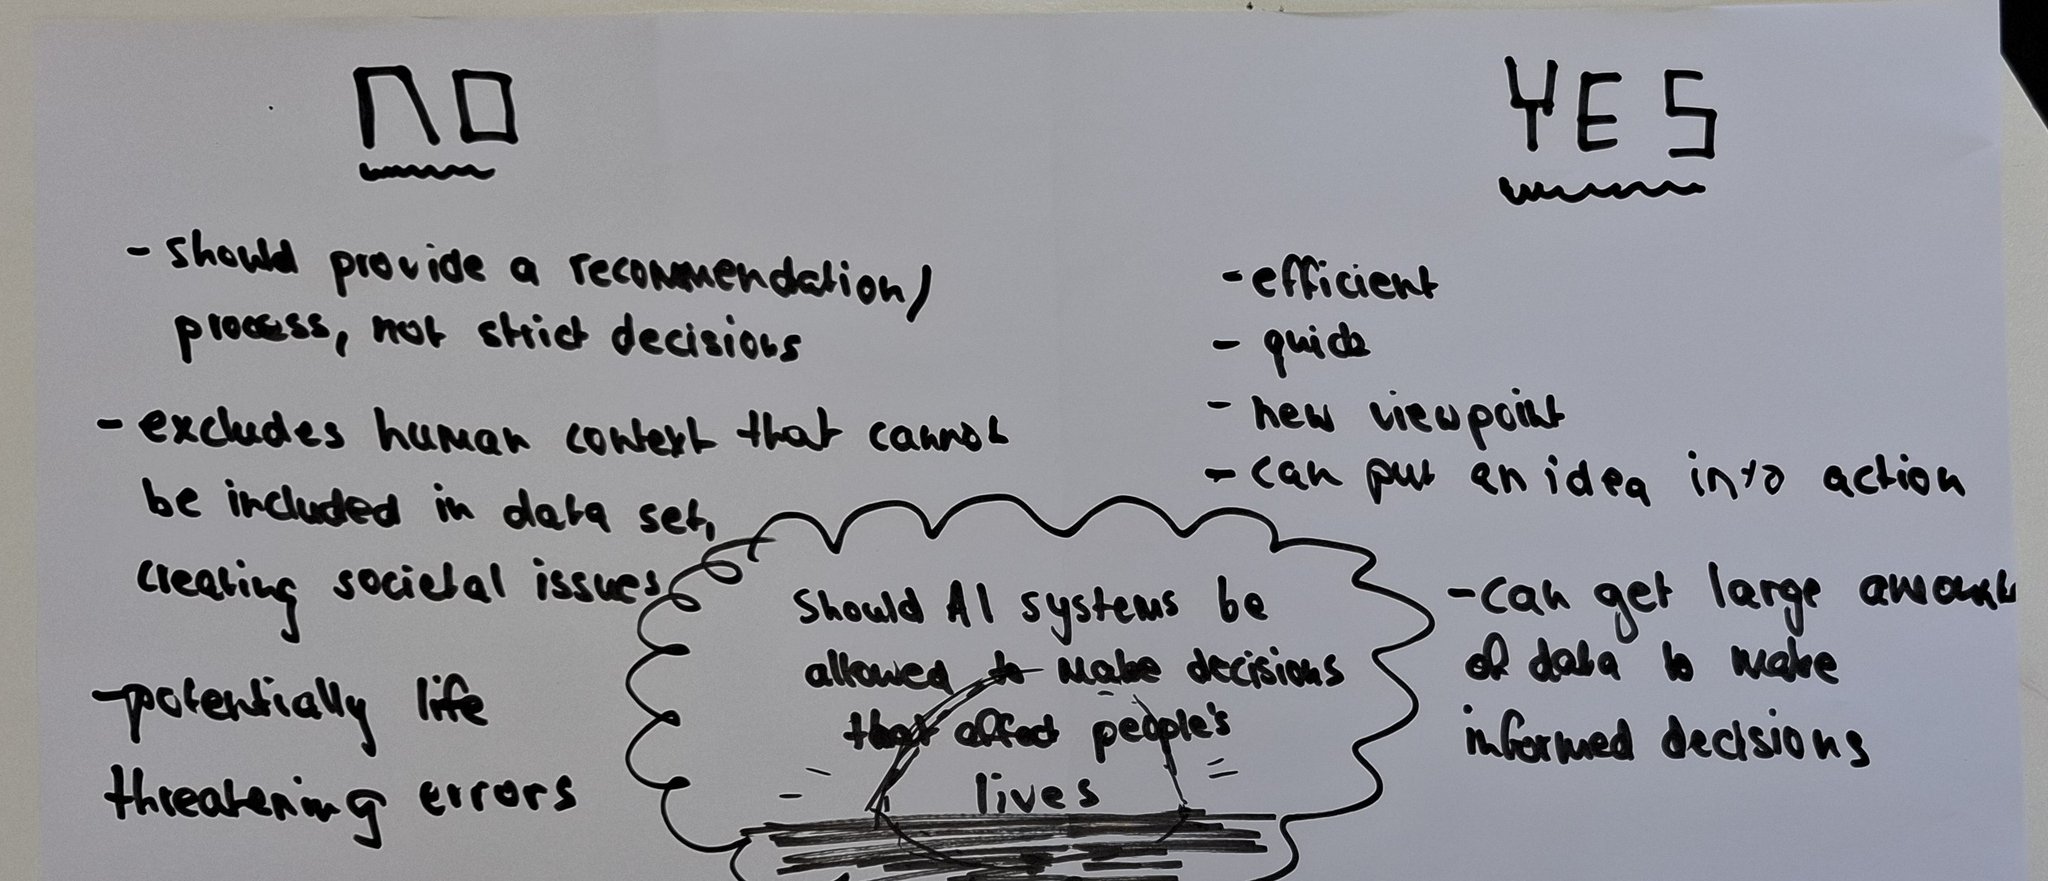 NO
- should provide a recommendation/
process, not strict decisions
- excludes human context that cannot
be included in data set,
creating societal issues
- potentially life
threatening errors
Should AI systems be
allowed to make decisions
that affect people's
lives
YES
- efficient
- quick
- new viewpoint
- can put an idea into action
- can get large amounts
of data to make
informed decisions